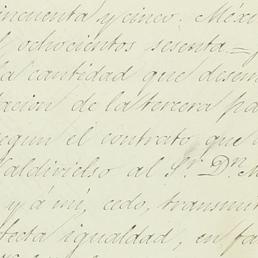 incuenta y cinco. Méxi
ochocientos sesenta.=
la cantidad que desem
lacion de la tercera pa
segun el contrato que
aldivielso al Sr. Dn. M
y á mí, cedo, transmi
fecta igualdad, en fa